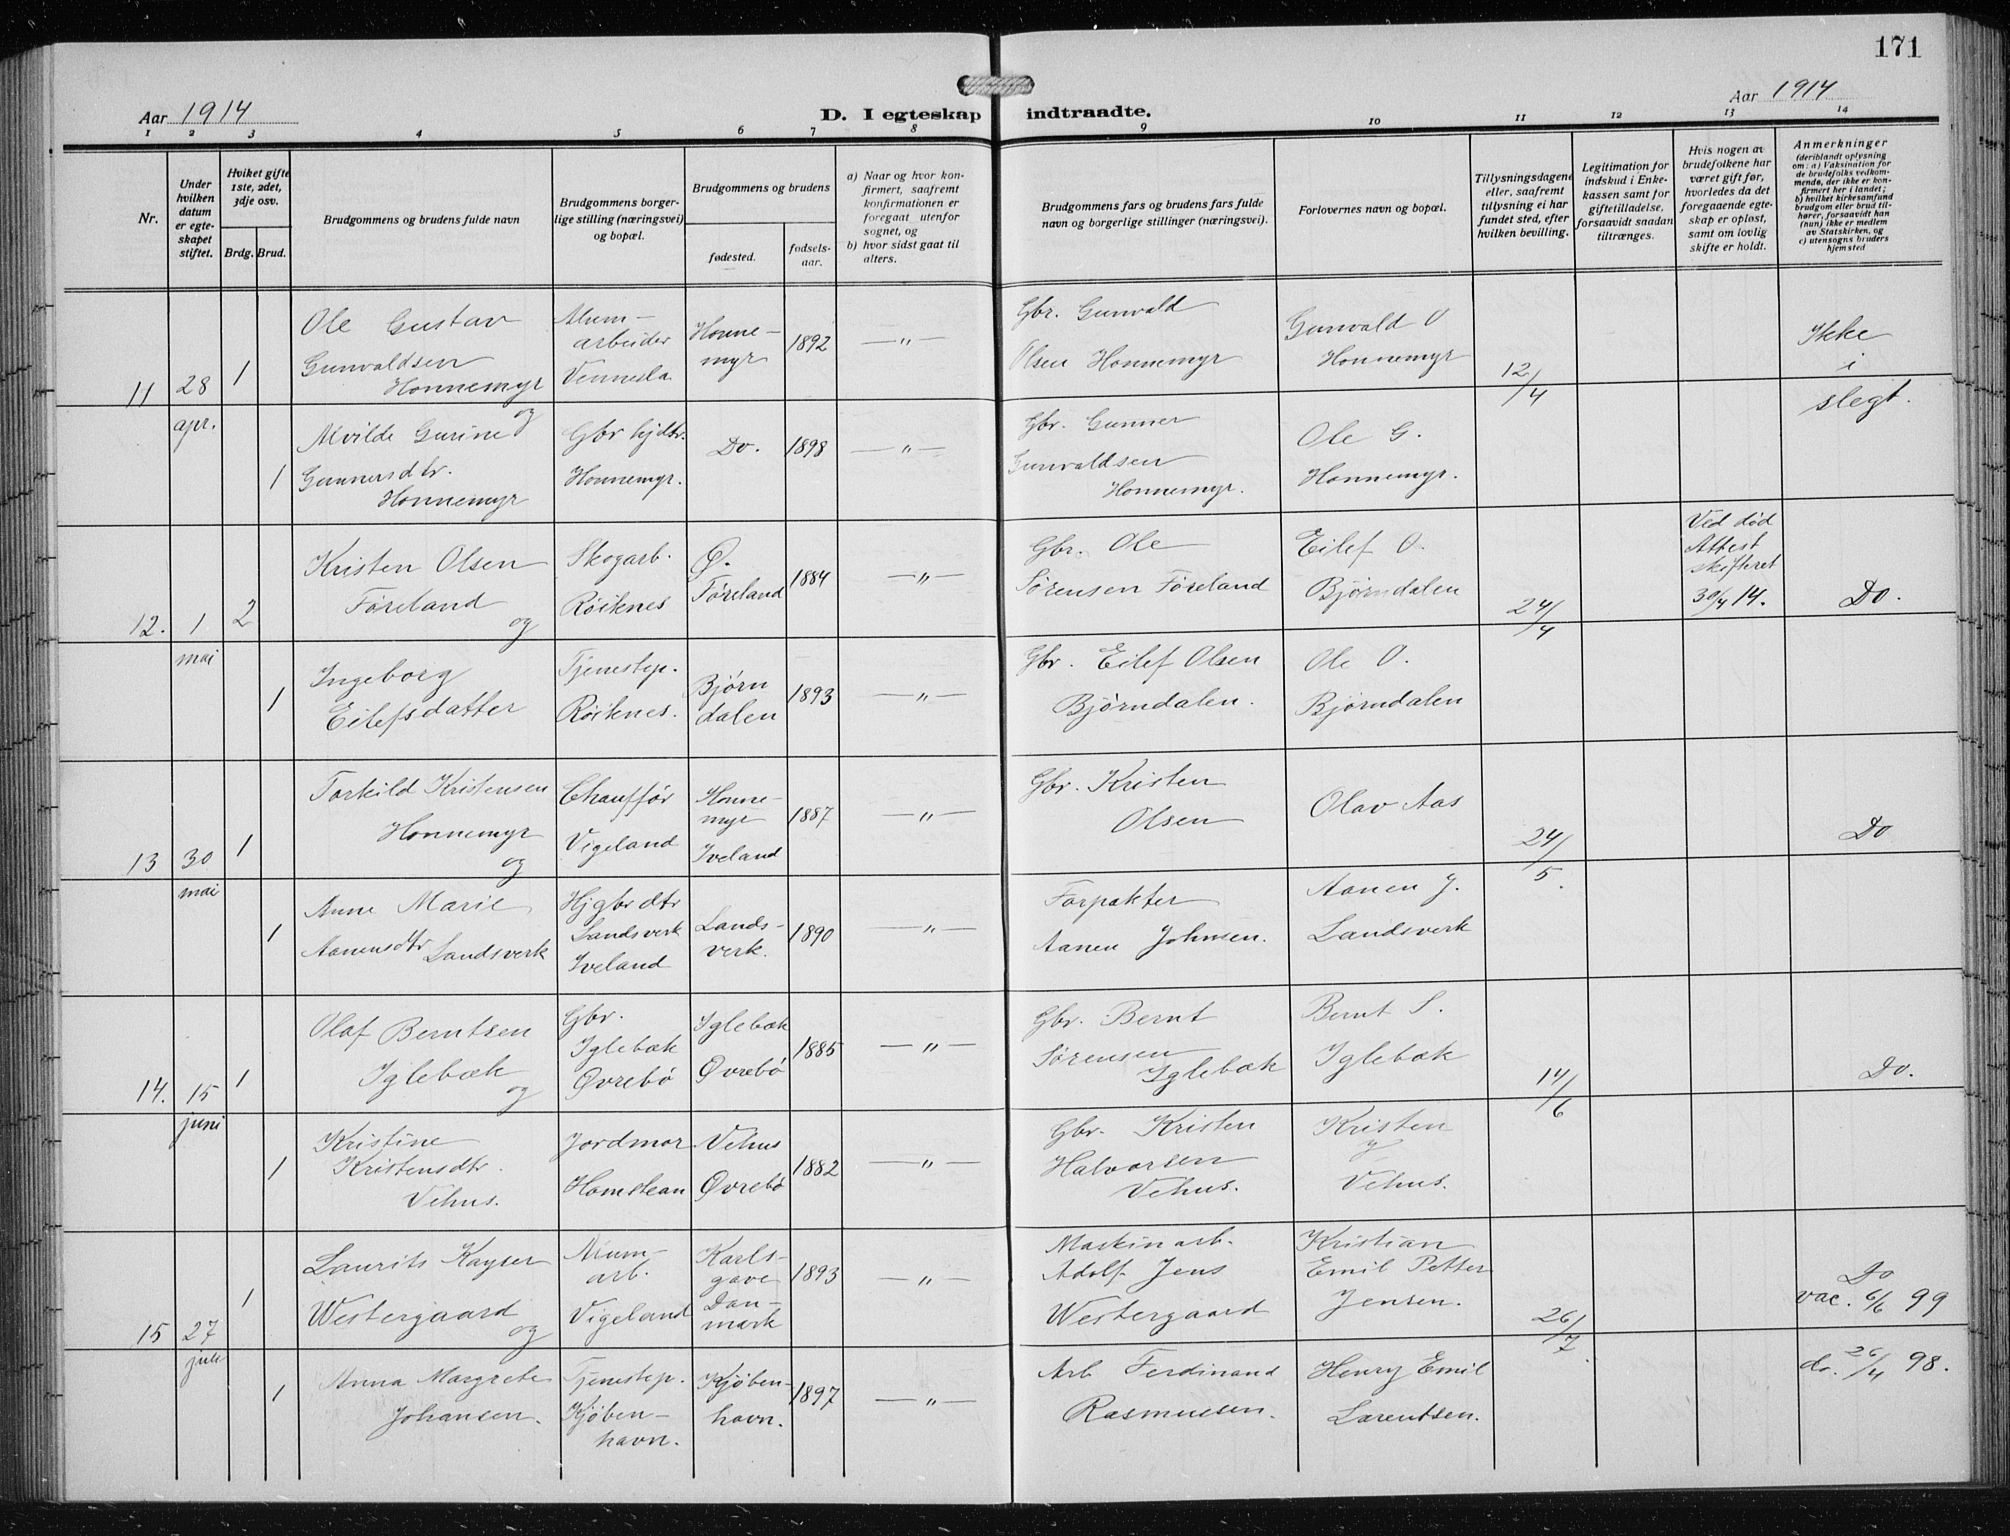 171
Aar 1914
D. I egteskap indtraadte.
Aar 1914
1 2 3 4 5 6 7 8 9 10 11 12 13 14
Nr.
Under hvilken datum er egteskapet stiftet.
Hviket gifte 1ste, 2det, 3dje osv.
Brdg. Brud.
Brudgommens og brudens fulde navn
Brudgommens borgerlige stilling (næringsvei) og bopæl.
Brudgommens og brudens
fødested.
fødselsaar.
a) Naar og hvor konfirmert, saafremt konfirmationen er foregaat utenfor sognet, og
b) hvor sidst gaat til alters.
Brudgommens fars og brudens fars fulde navn og borgerlige stillinger (næringsvei).
Forlovernes navn og bopæl.
Tillysningsdagene eller, saafremt tillysning ei har fundet sted, efter hvilken bevilling.
Legitimation for indskud i Enkekassen samt for giftetilladelse, forsaavidt saadan tiltrænges.
Hvis nogen av brudefolkene har været gift før, hvorledes da det foregaaende egteskap er opløst, samt om lovlig skifte er holdt.
Anmerkninger
(deriblandt oplysning om: a) Vaksination for de brudefolks vedkommende, der ikke er konfirmert her i landet; b) hvilket kirkesamfund brudgom eller brud tilhører, forsaavidt han (hun) ikke er medlem av Statskirken, og c) utensogns bruders hjemsted
11 28 apr. 1
Ole Gustav
Gunvaldsen
Honnemyr
og
Alumarbeider
Vennesla
Honnemyr
1892
—"—
Gbr. Gunvald
Olsen Honnemyr
Gunvald O
Honnemyr
12/4
Ikke
i
slegt.
1
Alvilde Gurine
Gunnersdtr.
Honnemyr
Gbr hjdtr.
Honnemyr.
Do.
1898
—"—
Gbr. Gunner
Gunvaldsen
Honnemyr.
Ole G.
Honnemyr.
12. 1 mai 2
Kristen Olsen
Føreland
og
Skogarb.
Röiknes
Ø.
Føreland
1884
—"—
Gbr. Ole
Sørensen Føreland
Eilef O.
Bjørndalen
24/4
Ved död
Attest
skifteret
30/4 14.
Do.
1
Ingeborg
Eilefsdatter
Tjenestep.
Röiknes.
Bjørndalen
1893
—"—
Gbr. Eilef Olsen
Björndalen.
Ole O.
Bjørndalen
13 30 mai 1
Torkild Kristensen
Honnemyr
og
Chauffør
Vigeland
Honnemyr
Iveland
1887
—"—
Gbr. Kristen
Olsen
Olav Aas
24/5.
Do
1
Anne Marie
Aanensdtr Landsverk
Hjgbrdtr
Landsverk
Iveland
Landsverk.
1890
—"—
Forpakter
Aanen Johnsen.
Aanen J.
Landsverk
14. 15 juni 1
Olaf Berntsen
Iglebæk
og
Gbr.
Iglebæk
Øvrebö
Iglebæk
Øvrebö
1885
—"—
Gbr. Bernt
Sörensen
Iglebæk
Bernt S.
Iglebæk
14/6
Do.
1
Kristine
Kristensdtr.
Vehus.
Jordmor
Homstean
Vehus
Øvrebö
1882
—"—
Gbr. Kristen
Halvorsen
Vehus.
Kristen
Vehus.
15 27 juli 1
Laurits Kayser
Westergaard
og
Alumarb.
Vigeland
Karlsgave
Danmark
1893
—"—
Maskinarb.
Adolf Jens
Westergaard
Kristian
Emil Petter
Jensen.
26/7.
Do
vac. 6/6 99
1
Anna Margrete
Johansen.
Tjenestep.
Kjöbenhavn.
Kjøbenhavn.
1897
—"—
Arb Ferdinand
Rasmussen.
Henry Emil
Larentsen.
do. 26/4 98.